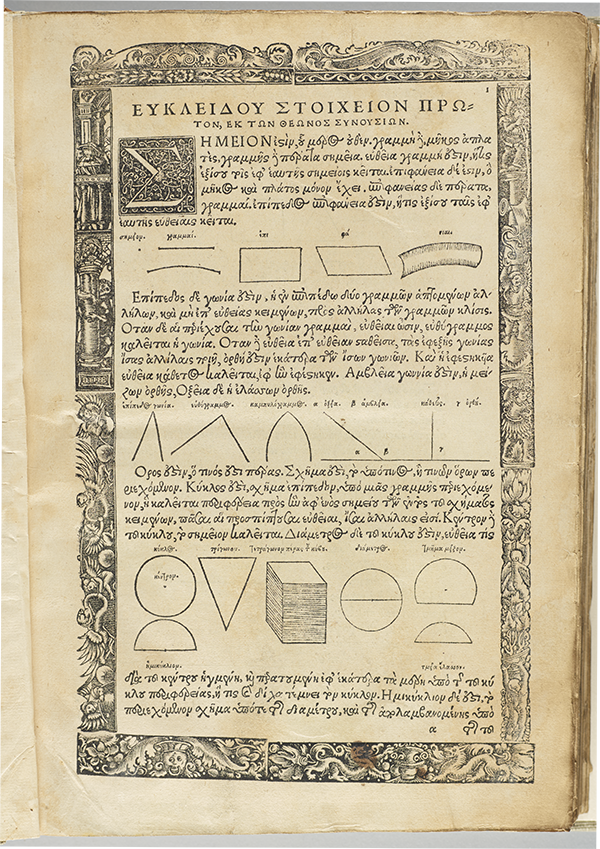 1
ΕΥΚΛΕΙΔΟΥ ΣΤΟΙΧΕΙΟΝ ΠΡΩ=
ΤΟΝ, ΕΚ ΤΩΝ ΘΕΩΝΟΣ ΣΥΝΟΥΣΙΩΝ.
ΣΗΜΕΙΟΝ ἐστιν, οὗ μέρος οὐθέν. γραμμὴ δὲ, μῆκος ἀπλα
τὲς, γραμμῆς δὲ πέρατα σημεῖα. εὐθεῖα γραμμή ἐστιν, ἥτις
ἐξίσου τοῖς ἐφ' ἑαυτῆς σημείοις κεῖται. ἐπιφάνεια δέ ἐστιν, ὃ
μῆκος καὶ πλάτος μόνον ἔχει. ἐπιφανείας δὲ πέρατα,
γραμμαί. ἐπίπεδος ἐπιφάνειά ἐστιν, ἥτις ἐξίσου ταῖς ἐφ'
ἑαυτῆς εὐθείαις κεῖται.
σημεῖον. γραμμαί. ἐπι φά νειαι
Ἐπίπεδος δὲ γωνία ἐστὶν, ἡ ἐν ἐπιπέδῳ δύο γραμμῶν ἁπτομένων ἀλ-
λήλων, καὶ μὴ ἐπ' εὐθείας κειμένων, πρὸς ἀλλήλας τῶν γραμμῶν κλίσις.
Ὅταν δὲ αἱ περιέχουσαι τὴν γωνίαν γραμμαὶ, εὐθεῖαι ὦσιν, εὐθύγραμμος
καλεῖται ἡ γωνία. Ὅταν δὲ εὐθεῖα ἐπ' εὐθεῖαν σταθεῖσα, τὰς ἐφεξῆς γωνίας
ἴσας ἀλλήλαις ποιῇ, ὀρθή ἐστιν ἑκατέρα τῶν ἴσων γωνιῶν. Καὶ ἡ ἐφεστηκυῖα
εὐθεῖα κάθετος καλεῖται, ἐφ' ἣν ἐφέστηκεν. Ἀμβλεῖα γωνία ἐστὶν, ἡ μεί-
ζων ὀρθῆς, Ὀξεῖα δὲ ἡ ἐλάσσων ὀρθῆς.
ἐπίπεδος γωνία. εὐθύγραμμος. καμπυλόγραμμος. α ὀξεῖα. β ἀμβλεῖα. κάθετος. γ ὀρθή.
α β γ
Ὅρος ἐστὶν, ὅ τινός ἐστι πέρας. Σχῆμά ἐστι, τὸ ὑπό τινος, ἤ τινων ὅρων πε
ριεχόμενον. Κύκλος ἐστὶ, σχῆμα ἐπίπεδον, ὑπὸ μιᾶς γραμμῆς περιεχόμε-
νον, ἣ καλεῖται περιφέρεια πρὸς ἣν ἀφ' ἑνὸς σημείου τῶν ἐντὸς τοῦ σχήματος
κειμένων, πᾶσαι αἱ προσπίπτουσαι εὐθεῖαι, ἴσαι ἀλλήλαις εἰσί. Κέντρον δὲ
τοῦ κύκλου, τὸ σημεῖον καλεῖται. Διάμετρος δὲ τοῦ κύκλου ἐστὶν, εὐθεῖά τις
κύκλος. τρίγωνον. Τετράγωνον πέρας τοῦ κύβου. διάμετρος. τμῆμα μεῖζον.
κέντρον.
ἡμικύκλιον. τμῆμα ἔλασσον.
διὰ τοῦ κέντρου ἠγμένη, καὶ περατουμένη ἐφ' ἑκάτερα τὰ μέρη ὑπὸ τῆς τοῦ κύ
κλου περιφερείας, ἥτις καὶ δίχα τέμνει τὸν κύκλον. Ἡμικύκλιον δέ ἐστι, τὸ
περιεχόμενον σχῆμα ὑπό τε τῆς διαμέτρου, καὶ τῆς ἀπολαμβανομένης ὑπὸ
α τῆς τοῦ